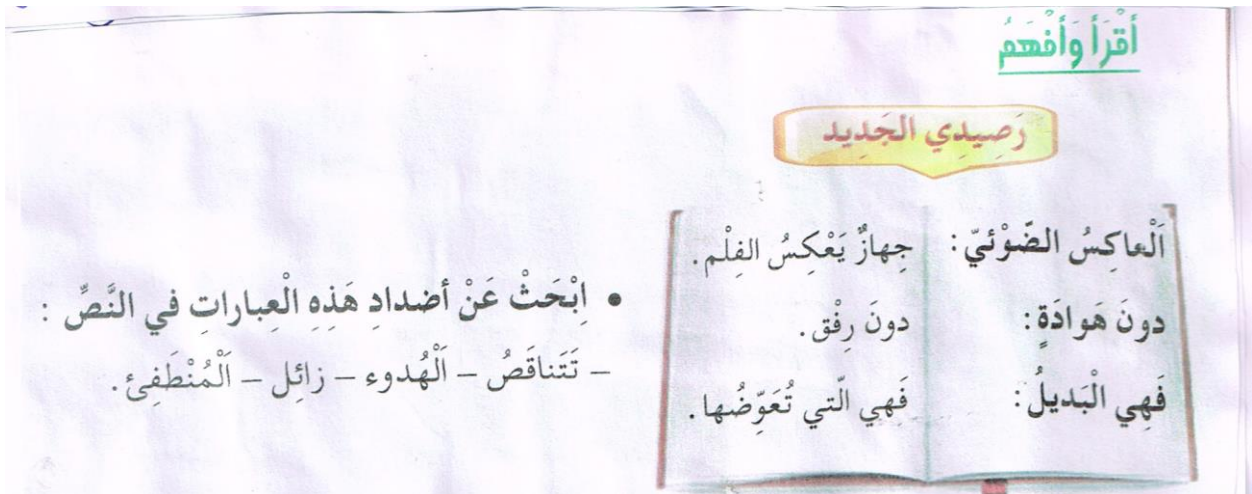 أَقْرَأُ وَأَفْهَمُ
رَصِيدِي الجَدِيد
اَلْعاكِسُ الضَّوْئيّ : جِهازٌ يَعْكِسُ الفِلْم.
دونَ هَوادَةٍ : دونَ رِفْق.
فَهِي الْبَديلُ : فَهِي الّتي تُعَوِّضُها.
• اِبْحَثْ عَنْ أضدادِ هَذِهِ الْعِباراتِ في النَّصِّ :
– تَتَناقَصُ – اَلْهُدوء – زائِل – اَلْمُنْطَفِئ.